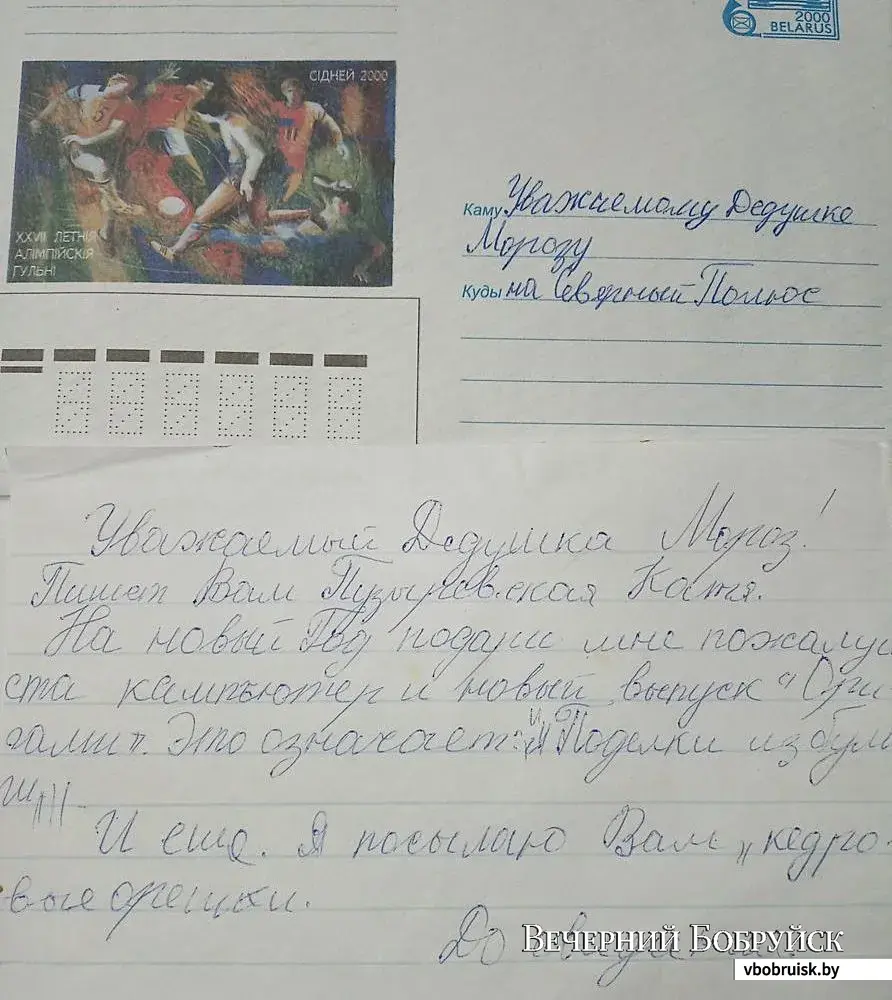 2000
BELARUS
СІДНЕЙ 2000
XXVII ЛЕТНІЯ
АЛІМПІЙСКІЯ
ГУЛЬНІ
Каму Уважаемому Дедушке
Морозу
Куды на Северный Полюс
Уважаемый Дедушка Мороз!
Пишет Вам Пузыревская Катя.
На новый Год подари мне пожалуй
ста кампъютер и новый выпуск "Ори
гами". Это означает: Поделки из бума
И еще. Я посылаю Вам „кедро-
вые орешки.
До свидания.
ВЕЧЕРНИЙ БОБРУЙСК
vbobruisk.by